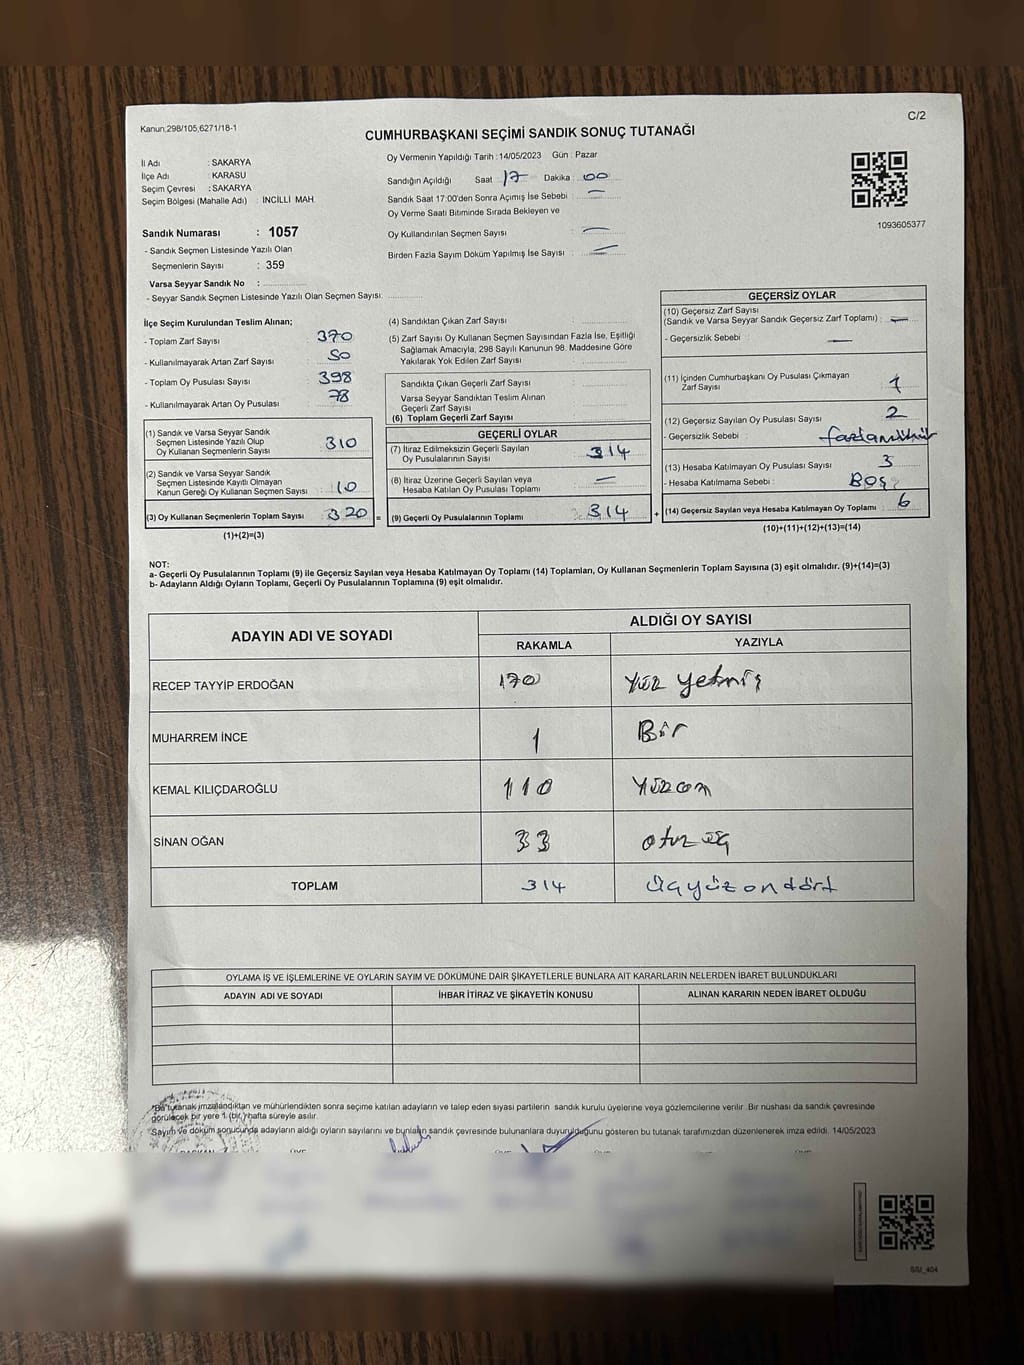 Kanun;298/105,6271/18-1
C/2
CUMHURBAŞKANI SEÇİMİ SANDIK SONUÇ TUTANAĞI
İl Adı : SAKARYA
İlçe Adı : KARASU
Seçim Çevresi : SAKARYA
Seçim Bölgesi (Mahalle Adı) : İNCİLLİ MAH.
Oy Vermenin Yapıldığı Tarih : 14/05/2023 Gün : Pazar
Sandığın Açıldığı Saat 17 Dakika : 00
Sandık Saat 17:00'den Sonra Açımış İse Sebebi : —
Oy Verme Saati Bitiminde Sırada Bekleyen ve
Oy Kullandırılan Seçmen Sayısı : —
Birden Fazla Sayım Döküm Yapılmış İse Sayısı : —
1093605377
Sandık Numarası : 1057
- Sandık Seçmen Listesinde Yazılı Olan
Seçmenlerin Sayısı : 359
Varsa Seyyar Sandık No :
- Seyyar Sandık Seçmen Listesinde Yazılı Olan Seçmen Sayısı:
İlçe Seçim Kurulundan Teslim Alınan;
- Toplam Zarf Sayısı : 370
- Kullanılmayarak Artan Zarf Sayısı : 50
- Toplam Oy Pusulası Sayısı : 398
- Kullanılmayarak Artan Oy Pusulası : 78
(1) Sandık ve Varsa Seyyar Sandık
Seçmen Listesinde Yazılı Olup
Oy Kullanan Seçmenlerin Sayısı : 310
(2) Sandık ve Varsa Seyyar Sandık
Seçmen Listesinde Kayıtlı Olmayan
Kanun Gereği Oy Kullanan Seçmen Sayısı : 10
(3) Oy Kullanan Seçmenlerin Toplam Sayısı : 320 =
(1)+(2)=(3)
(4) Sandıktan Çıkan Zarf Sayısı :
(5) Zarf Sayısı Oy Kullanan Seçmen Sayısından Fazla İse, Eşitliği
Sağlamak Amacıyla, 298 Sayılı Kanunun 98. Maddesine Göre
Yakılarak Yok Edilen Zarf Sayısı :
Sandıkta Çıkan Geçerli Zarf Sayısı :
Varsa Seyyar Sandıktan Teslim Alınan
Geçerli Zarf Sayısı :
(6) Toplam Geçerli Zarf Sayısı :
GEÇERLİ OYLAR
(7) İtiraz Edilmeksizin Geçerli Sayılan
Oy Pusulalarının Sayısı : 314
(8) İtiraz Üzerine Geçerli Sayılan veya
Hesaba Katılan Oy Pusulası Toplamı : —
(9) Geçerli Oy Pusulalarının Toplamı : 314 +
GEÇERSİZ OYLAR
(10) Geçersiz Zarf Sayısı
(Sandık ve Varsa Seyyar Sandık Geçersiz Zarf Toplamı) : —
- Geçersizlik Sebebi : —
(11) İçinden Cumhurbaşkanı Oy Pusulası Çıkmayan
Zarf Sayısı : 1
(12) Geçersiz Sayılan Oy Pusulası Sayısı : 2
- Geçersizlik Sebebi :
(13) Hesaba Katılmayan Oy Pusulası Sayısı : 3
- Hesaba Katılmama Sebebi : Boş
(14) Geçersiz Sayılan veya Hesaba Katılmayan Oy Toplamı : 6
(10)+(11)+(12)+(13)=(14)
NOT:
a- Geçerli Oy Pusulalarının Toplamı (9) ile Geçersiz Sayılan veya Hesaba Katılmayan Oy Toplamı (14) Toplamları, Oy Kullanan Seçmenlerin Toplam Sayısına (3) eşit olmalıdır. (9)+(14)=(3)
b- Adayların Aldığı Oyların Toplamı, Geçerli Oy Pusulalarının Toplamına (9) eşit olmalıdır.
ADAYIN ADI VE SOYADI
ALDIĞI OY SAYISI
RAKAMLA YAZIYLA
RECEP TAYYİP ERDOĞAN 170 Yüz yetmiş
MUHARREM İNCE 1 Bir
KEMAL KILIÇDAROĞLU 110 Yüzon
SİNAN OĞAN 33 otuz üç
TOPLAM 314 Üçyüz on dört
OYLAMA İŞ VE İŞLEMLERİNE VE OYLARIN SAYIM VE DÖKÜMÜNE DAİR ŞİKAYETLERLE BUNLARA AİT KARARLARIN NELERDEN İBARET BULUNDUKLARI
ADAYIN ADI VE SOYADI İHBAR İTİRAZ VE ŞİKAYETİN KONUSU ALINAN KARARIN NEDEN İBARET OLDUĞU
"Bu tutanak imzalandıktan ve mühürlendikten sonra seçime katılan adayların ve talep eden siyasi partilerin sandık kurulu üyelerine veya gözlemcilerine verilir. Bir nüshası da sandık çevresinde
görülecek bir yere 1 (bir) hafta süreyle asılır.
Sayım ve döküm sonucunda adayların aldığı oyların sayılarını ve bunların sandık çevresinde bulunanlara duyurulduğunu gösteren bu tutanak tarafımızdan düzenlenerek imza edildi. 14/05/2023
SSI_404